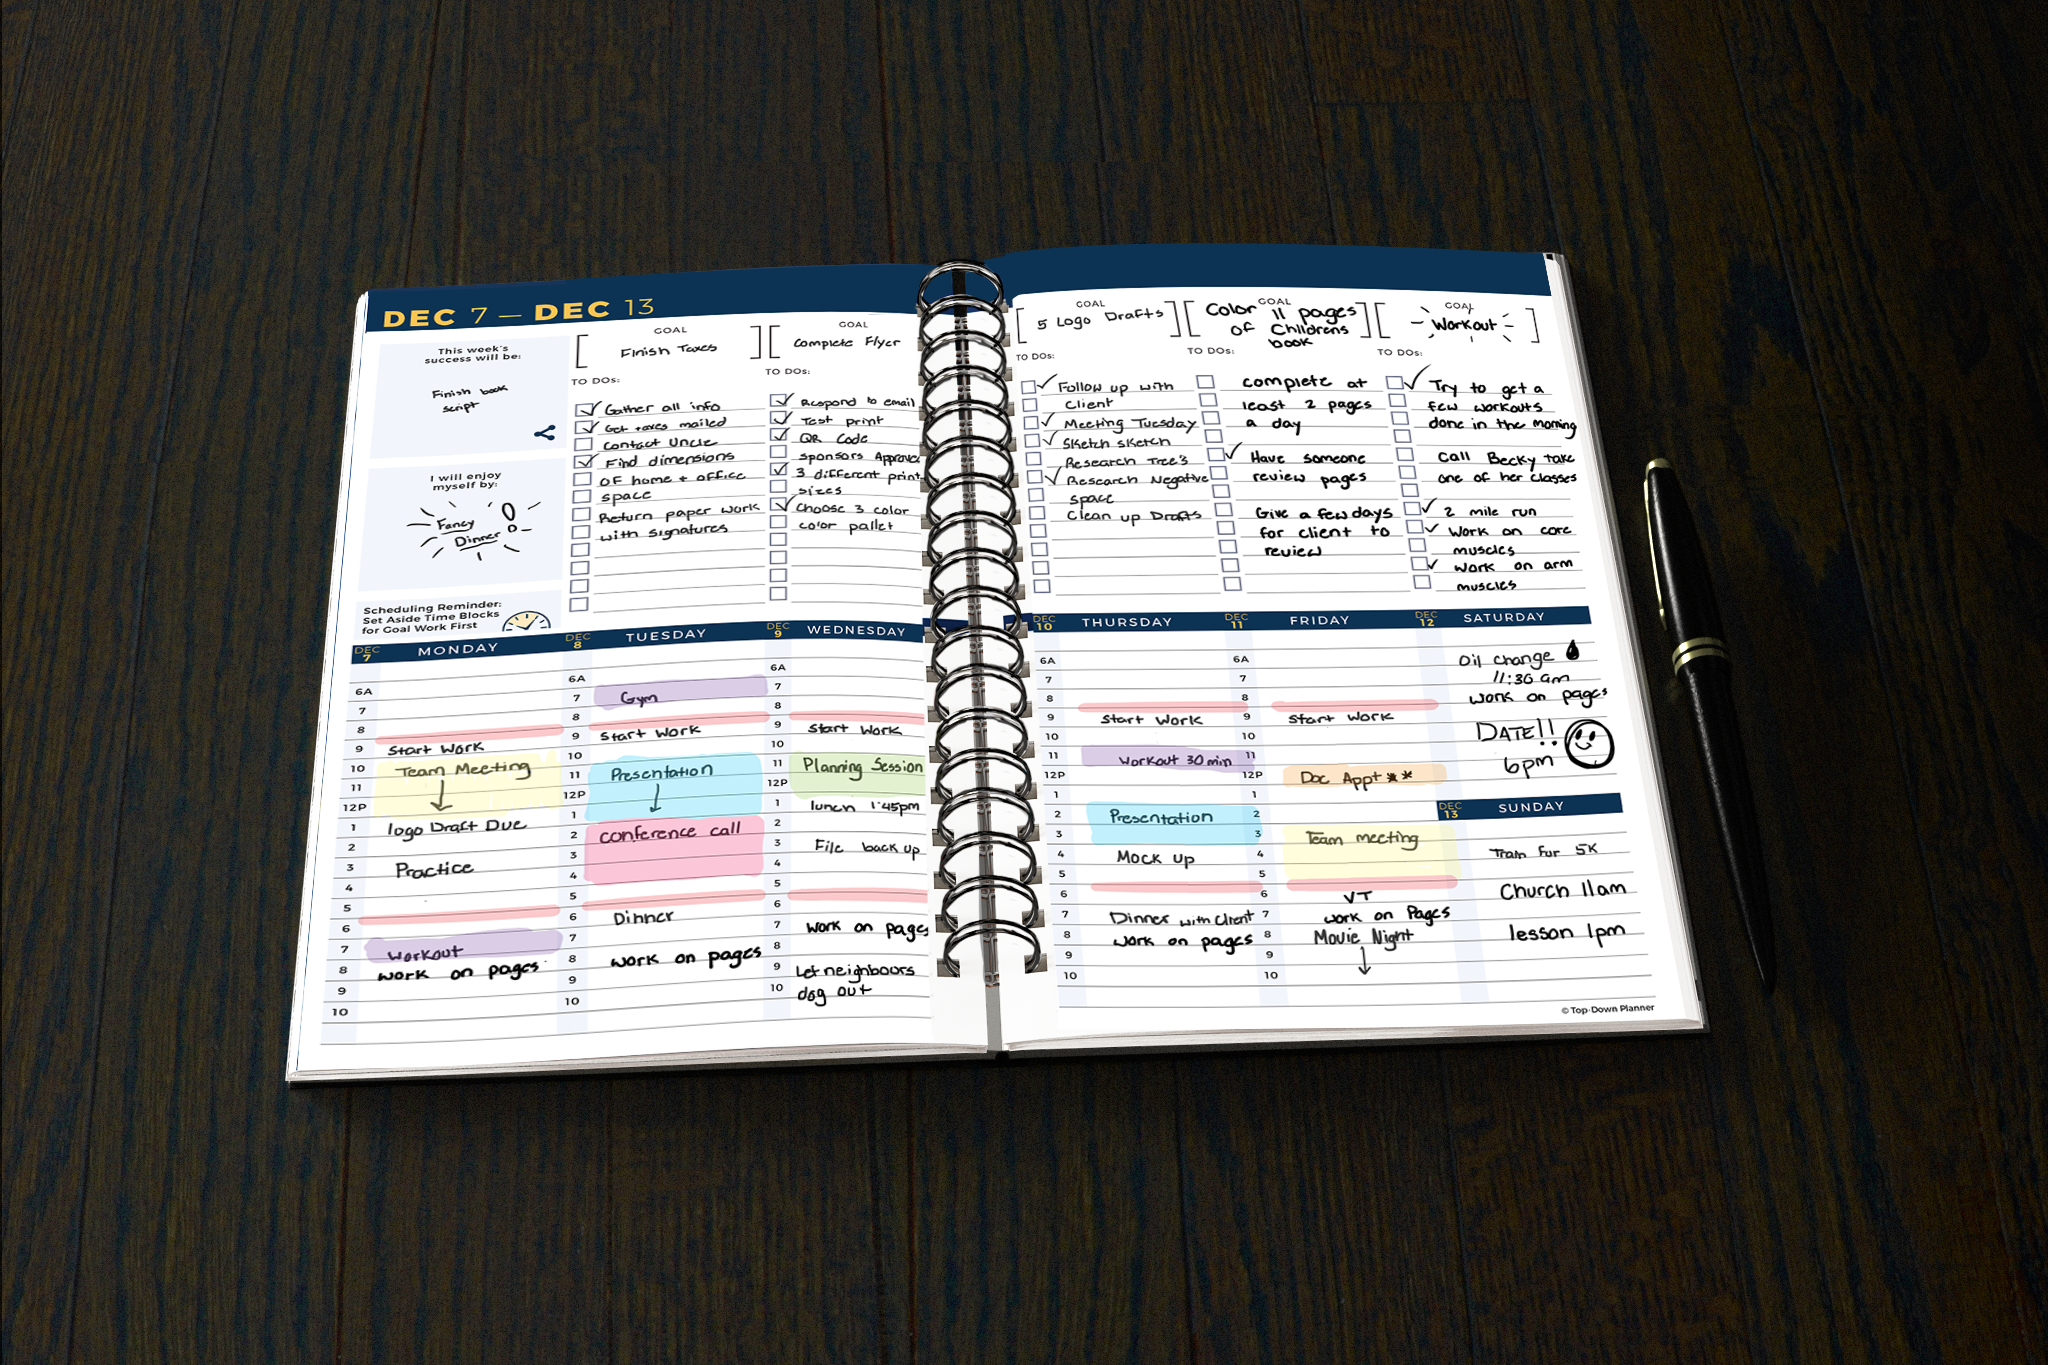 DEC 7 — DEC 13
This week's
success will be:
Finish book
script
I will enjoy
myself by:
Fancy
Dinner
Scheduling Reminder:
Set Aside Time Blocks
for Goal Work First
GOAL
Finish Taxes
TO DOs:
Gather all info
Get taxes mailed
contact Uncle
Find dimensions
OF home + office
space
Return paper work
with signatures
GOAL
Complete Flyer
TO DOs:
Respond to email
Test print
QR Code
sponsors Approve
3 different print
sizes
Choose 3 color
color pallet
GOAL
5 Logo Drafts
TO DOs:
Follow up with
client
Meeting Tuesday
Sketch sketch
Research Tree's
Research Negative
space
Clean up Drafts
GOAL
Color 11 pages
of Childrens
book
TO DOs:
complete at
least 2 pages
a day
Have someone
review pages
Give a few days
for client to
review
GOAL
Workout
TO DOs:
Try to get a
few workouts
done in the morning
Call Becky take
one of her classes
2 mile run
Work on core
muscles
Work on arm
muscles
DEC
7
MONDAY
6A
7
8
9 Start Work
10 Team Meeting
11
12P
1 logo Draft Due
2
3 Practice
4
5
6
7 Workout
8 work on pages
9
10
DEC
8
TUESDAY
6A
7 Gym
8
9 Start Work
10
11 Presentation
12P
1
2 conference call
3
4
5
6 Dinner
7
8 work on pages
9
10
DEC
9
WEDNESDAY
6A
7
8
9 Start Work
10
11 Planning Session
12P
1 lunch 1:45pm
2
3 File back up
4
5
6
7 work on pages
8
9 Let neighbours
10 dog out
DEC
10
THURSDAY
6A
7
8
9 Start Work
10
11 Workout 30 min
12P
1
2 Presentation
3
4 Mock up
5
6
7 Dinner with client
8 work on pages
9
10
DEC
11
FRIDAY
6A
7
8
9 Start Work
10
11
12P Doc Appt **
1
2
3 Team meeting
4
5
6 VT
7 work on Pages
8 Movie Night
9
10
DEC
12
SATURDAY
Oil change
11:30 am
work on pages
DATE!!
6pm
DEC
13
SUNDAY
Train for 5K
Church 11am
lesson 1pm
© Top-Down Planner